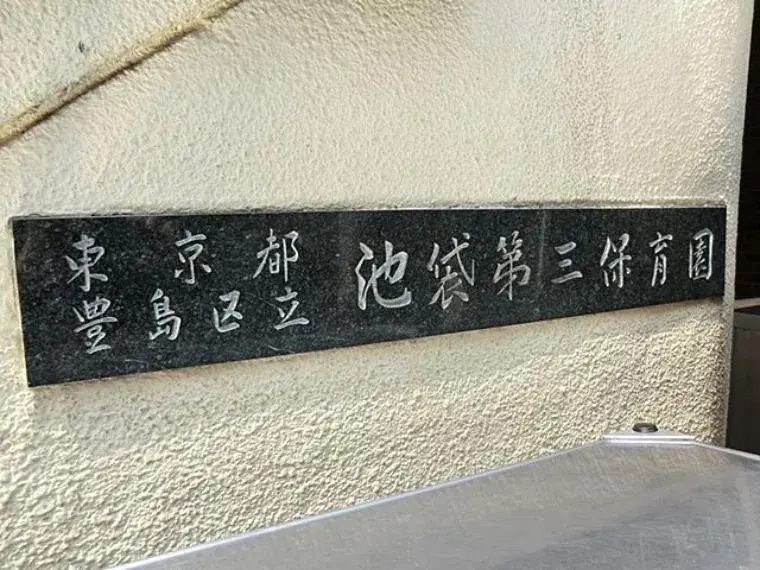 東京都
豊島区立
池袋第三保育園